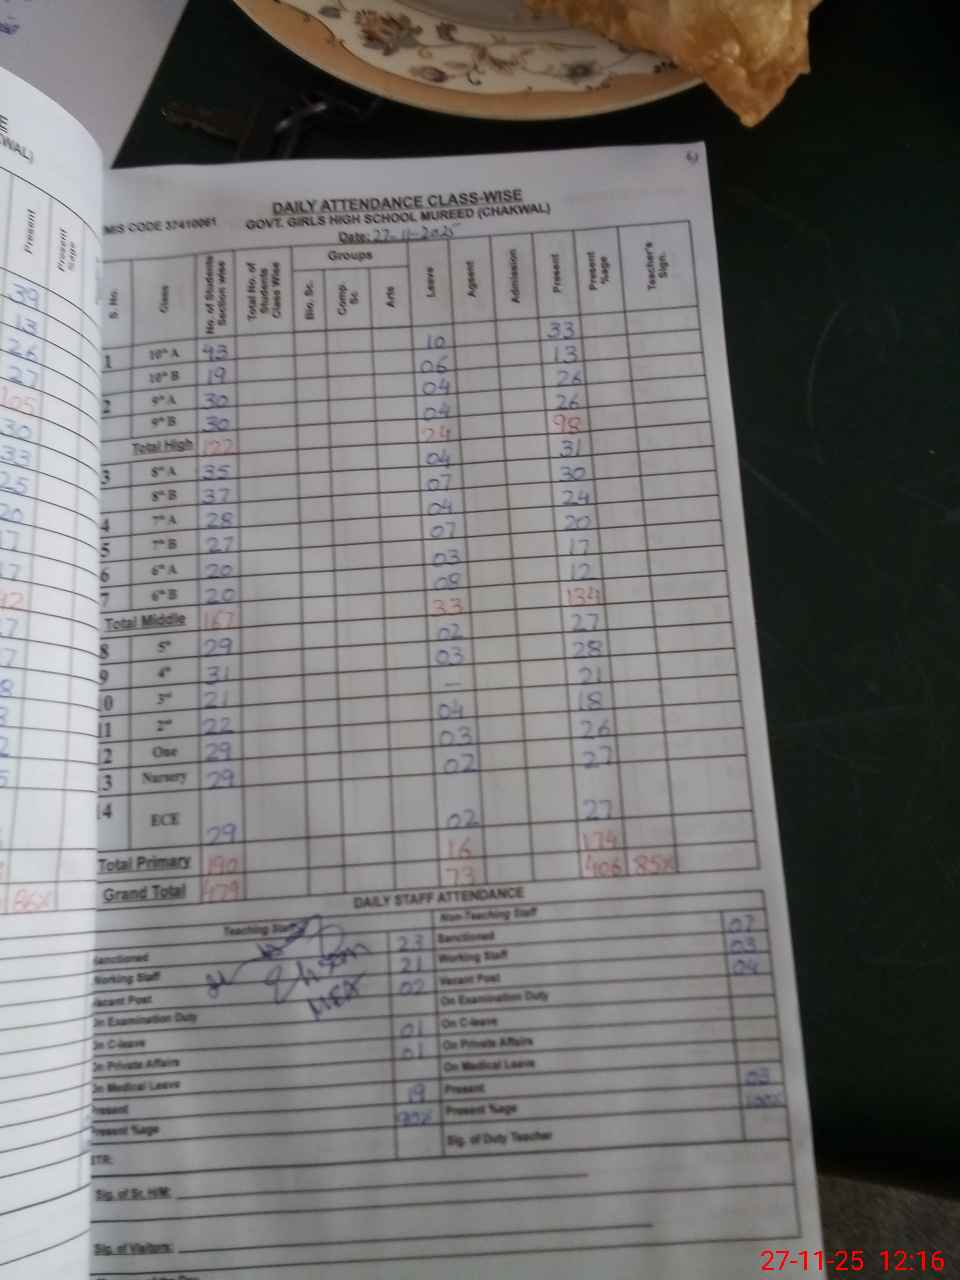 E
KWAL)
Present
Present %age
39
13
26
27
105
30
33
25
20
17
17
86%
DAILY ATTENDANCE CLASS-WISE
MIS CODE 37410061 GOVT. GIRLS HIGH SCHOOL MUREED (CHAKWAL)
Date: 27-11-2025
S. No. Class No. of Students Section wise Total No. of Students Class Wise Groups Bio. Sc. Comp. Sc Arts Leave Agsent Admission Present Present %age Teacher's Sign.
1 10th A 43 10 33
10th B 19 06 13
2 9th A 30 04 26
9th B 30 04 26
Total High 122 24 98
3 8th A 35 04 31
8th B 37 07 30
4 7th A 28 04 24
5 7th B 27 07 20
6 6th A 20 03 17
7 6th B 20 08 12
Total Middle 167 33 134
8 5th 29 02 27
9 4th 31 03 28
10 3rd 21 — 21
11 2nd 22 04 18
12 One 29 03 26
13 Nursery 29 02 27
14 ECE 29 02 27
Total Primary 190 16 174
Grand Total 479 73 406 85%
DAILY STAFF ATTENDANCE
Teaching Staff Non-Teaching Staff
Sanctioned 23 Sanctioned 07
Working Staff 21 Working Staff 03
Vacant Post 02 Vacant Post 04
On Examination Duty On Examination Duty
On C-leave 01 On C-leave
On Private Affairs 01 On Private Affairs
On Medical Leave On Medical Leave
Present 19 Present 03
Present %age 90% Present %age 100%
STR: Sig. of Duty Teacher
Sig. of Sr. H/M:
Sig. of Visitors:
27-11-25 12:16